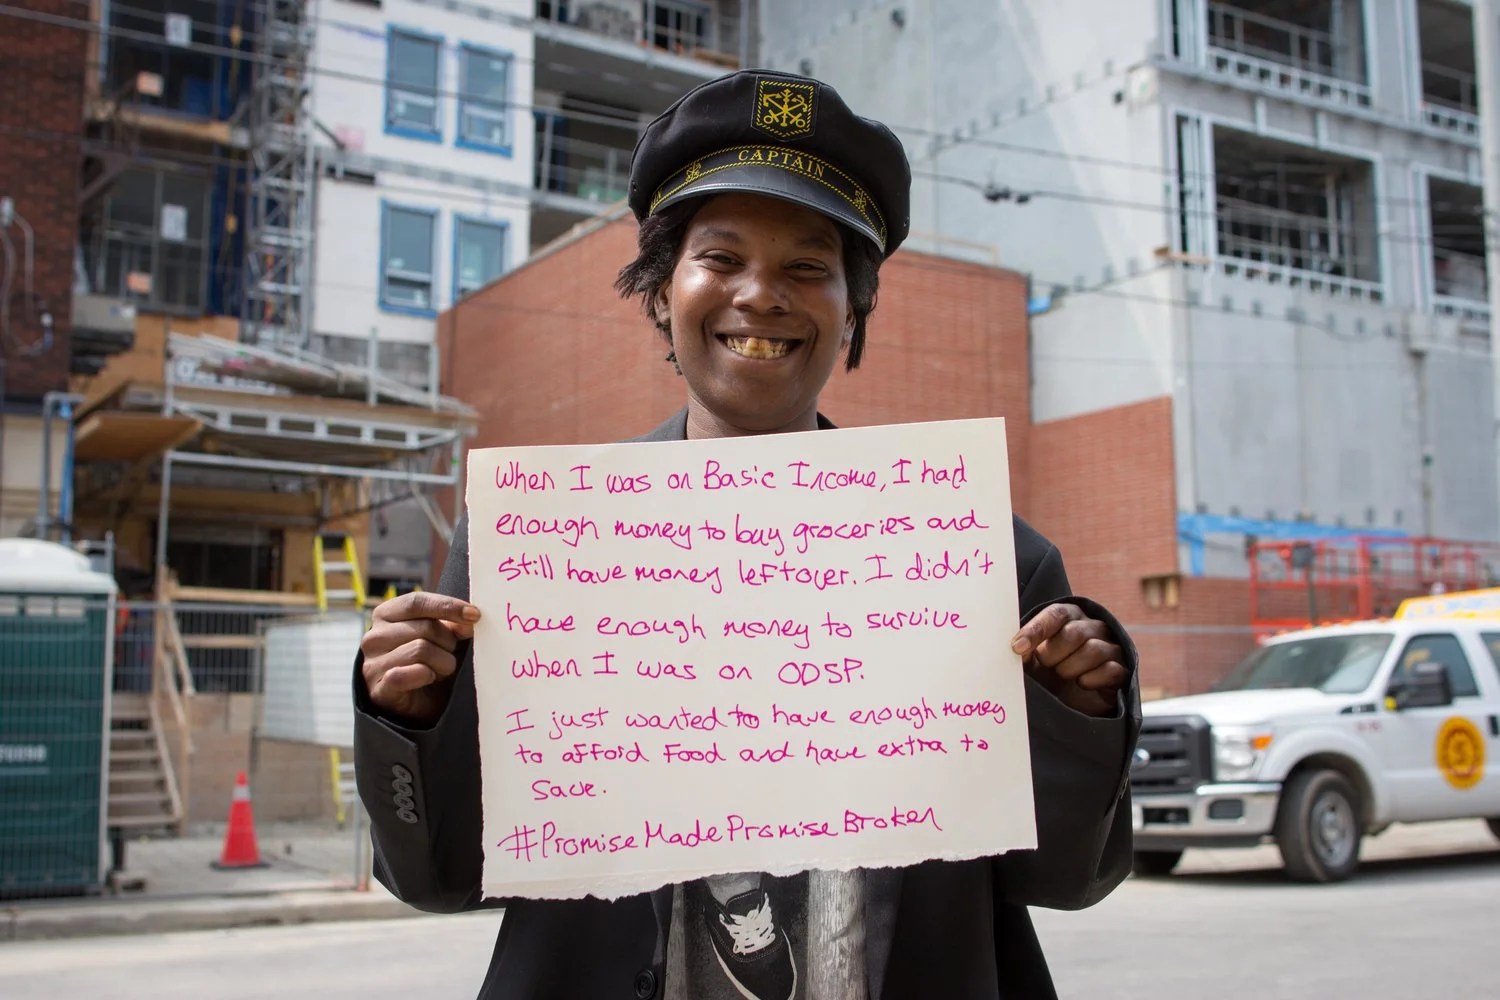 CAPTAIN
When I was on Basic Income, I had
enough money to buy groceries and
still have money leftover. I didn't
have enough money to survive
when I was on ODSP.
I just wanted to have enough money
to afford food and have extra to
save.
#PromiseMadePromiseBroken